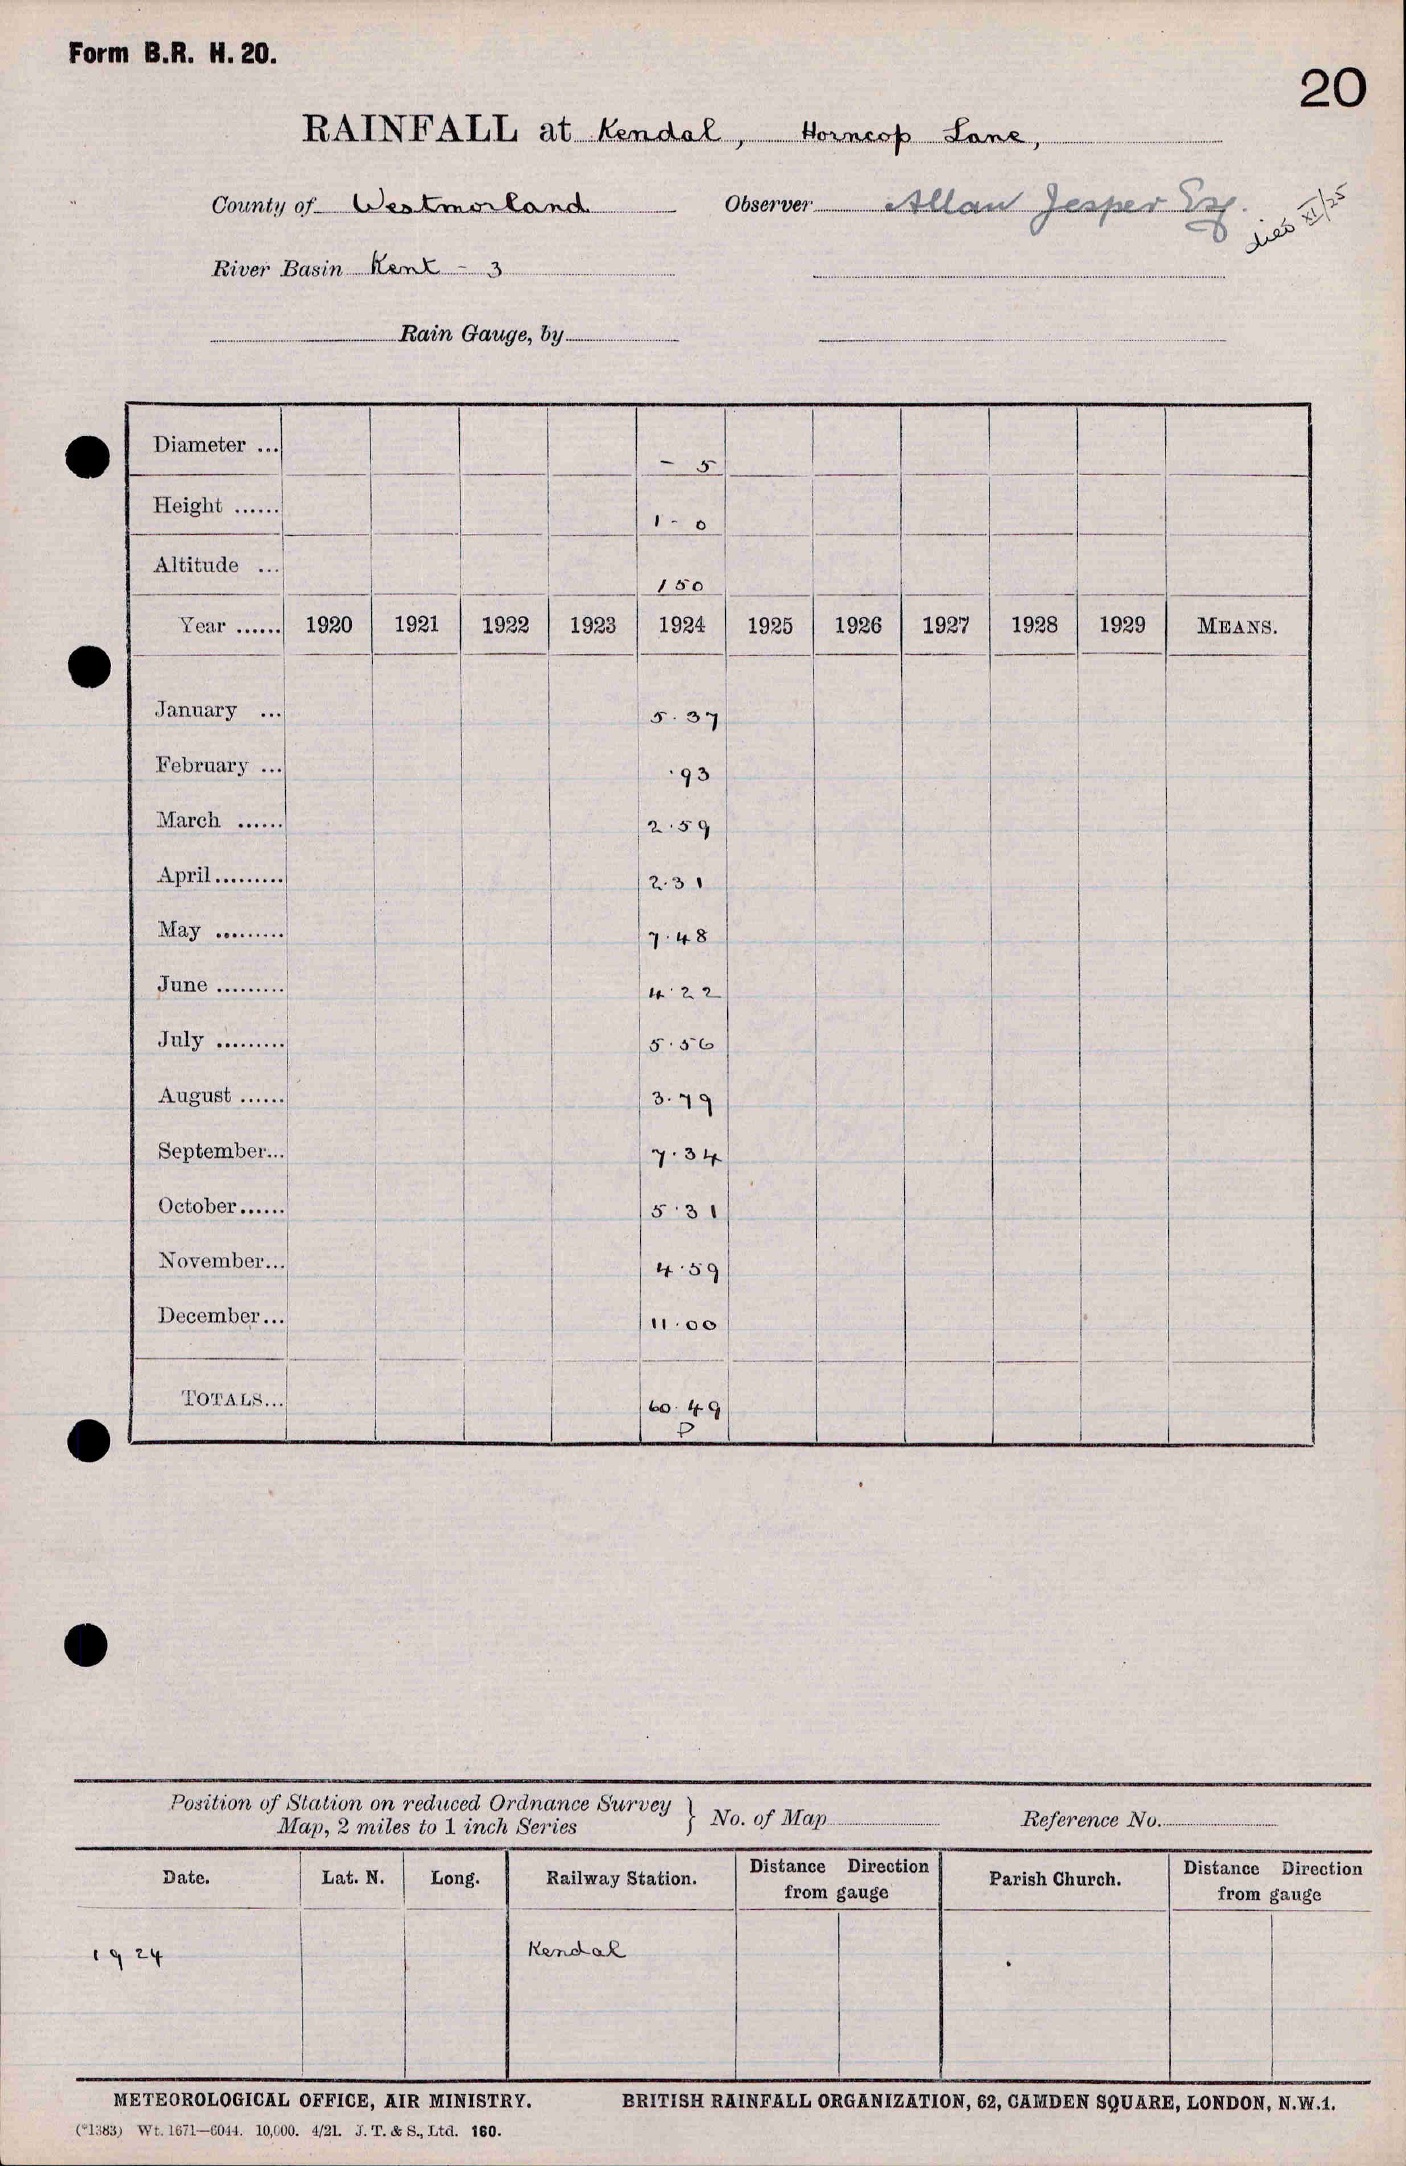 Form B.R. H. 20.
20
RAINFALL at Kendal, Horncop Lane,
County of Westmorland Observer Allan Jesper Esq.
died XI/25
River Basin Kent - 3
Rain Gauge, by
Diameter ... - 5
Height ...... 1 - 0
Altitude ... 150
Year ...... 1920 1921 1922 1923 1924 1925 1926 1927 1928 1929 MEANS.
January ... 5.37
February ... .93
March ...... 2.59
April ......... 2.31
May ......... 7.48
June ......... 4.22
July ......... 5.56
August ...... 3.79
September... 7.34
October...... 5.31
November... 4.59
December... 11.00
TOTALS... 60.49
P
Position of Station on reduced Ordnance Survey
Map, 2 miles to 1 inch Series } No. of Map Reference No.
Date. Lat. N. Long. Railway Station. Distance Direction from gauge Parish Church. Distance Direction from gauge
1924 Kendal
METEOROLOGICAL OFFICE, AIR MINISTRY. BRITISH RAINFALL ORGANIZATION, 62, CAMDEN SQUARE, LONDON, N.W.1.
(*1383) Wt. 1671—6044. 10,000. 4/21. J. T. & S., Ltd. 160.